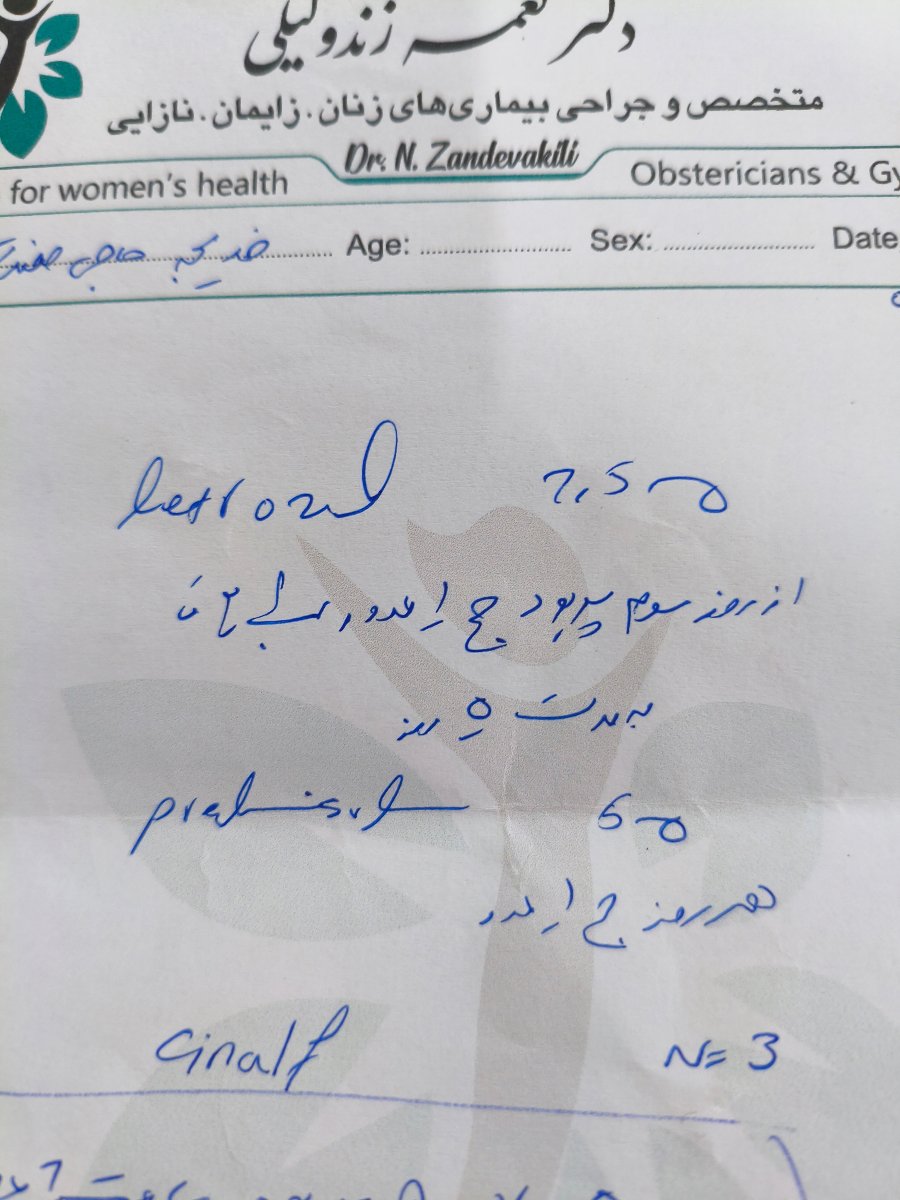 دکتر نعمه زندوکیلی
متخصص و جراحی بیماری‌های زنان . زایمان . نازایی
Dr. N. Zandevakili
for women's health Obstericians & Gy
خدیجه حاجی Age: Sex: Date
letrozol 2,5 mg
از روز سوم پریود صبح ۱ عدد
به مدت ۵ روز
prednisolo 5 mg
هر روز صبح ۱ عدد
Cinalf N= 3